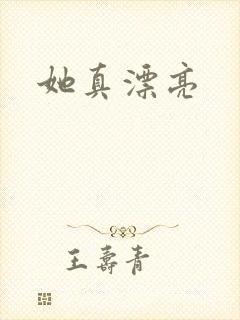 她真漂亮
王寿青